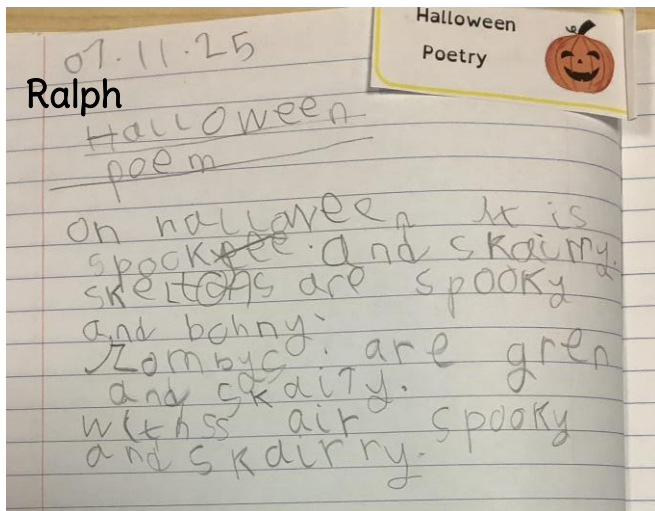 Halloween
Poetry
07.11.25
Ralph
Halloween
poem
on halloween It is
spooky. and skairry.
skeltons are spooky
and bohny.
Zombys. are gren
and skairy.
withss air spooky
and skairry.